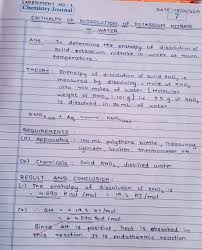 EXPERIMENT NO : 1
Chemistry Journal
DATE:
7
ENTHALPY OF DISSOLUTION OF POTASSIUM NITRATE
IN WATER
AIM : To determine the enthalpy of dissolution of
solid potassium nitrate in water at room
temperature.
THEORY : Enthalpy of dissolution of solid KNO3 is
measured by dissolving 1 mole of KNO3
into 400 moles of water [Molecular
weight of KNO3 101 g] i.e.
is dissolved in
KNO3(s) + Aq KNO3
REQUIREMENTS :
(a) Apparatus : 100 mL polythene bottle, measuring
cylinder, thermometer etc.
(b) Chemicals : Solid KNO3, distilled water
RESULT AND CONCLUSION :
(1) The enthalpy of dissolution of KNO3 is
(2) ΔH = +
Since ΔH is positive, heat is absorbed in
this reaction. It is endothermic reaction